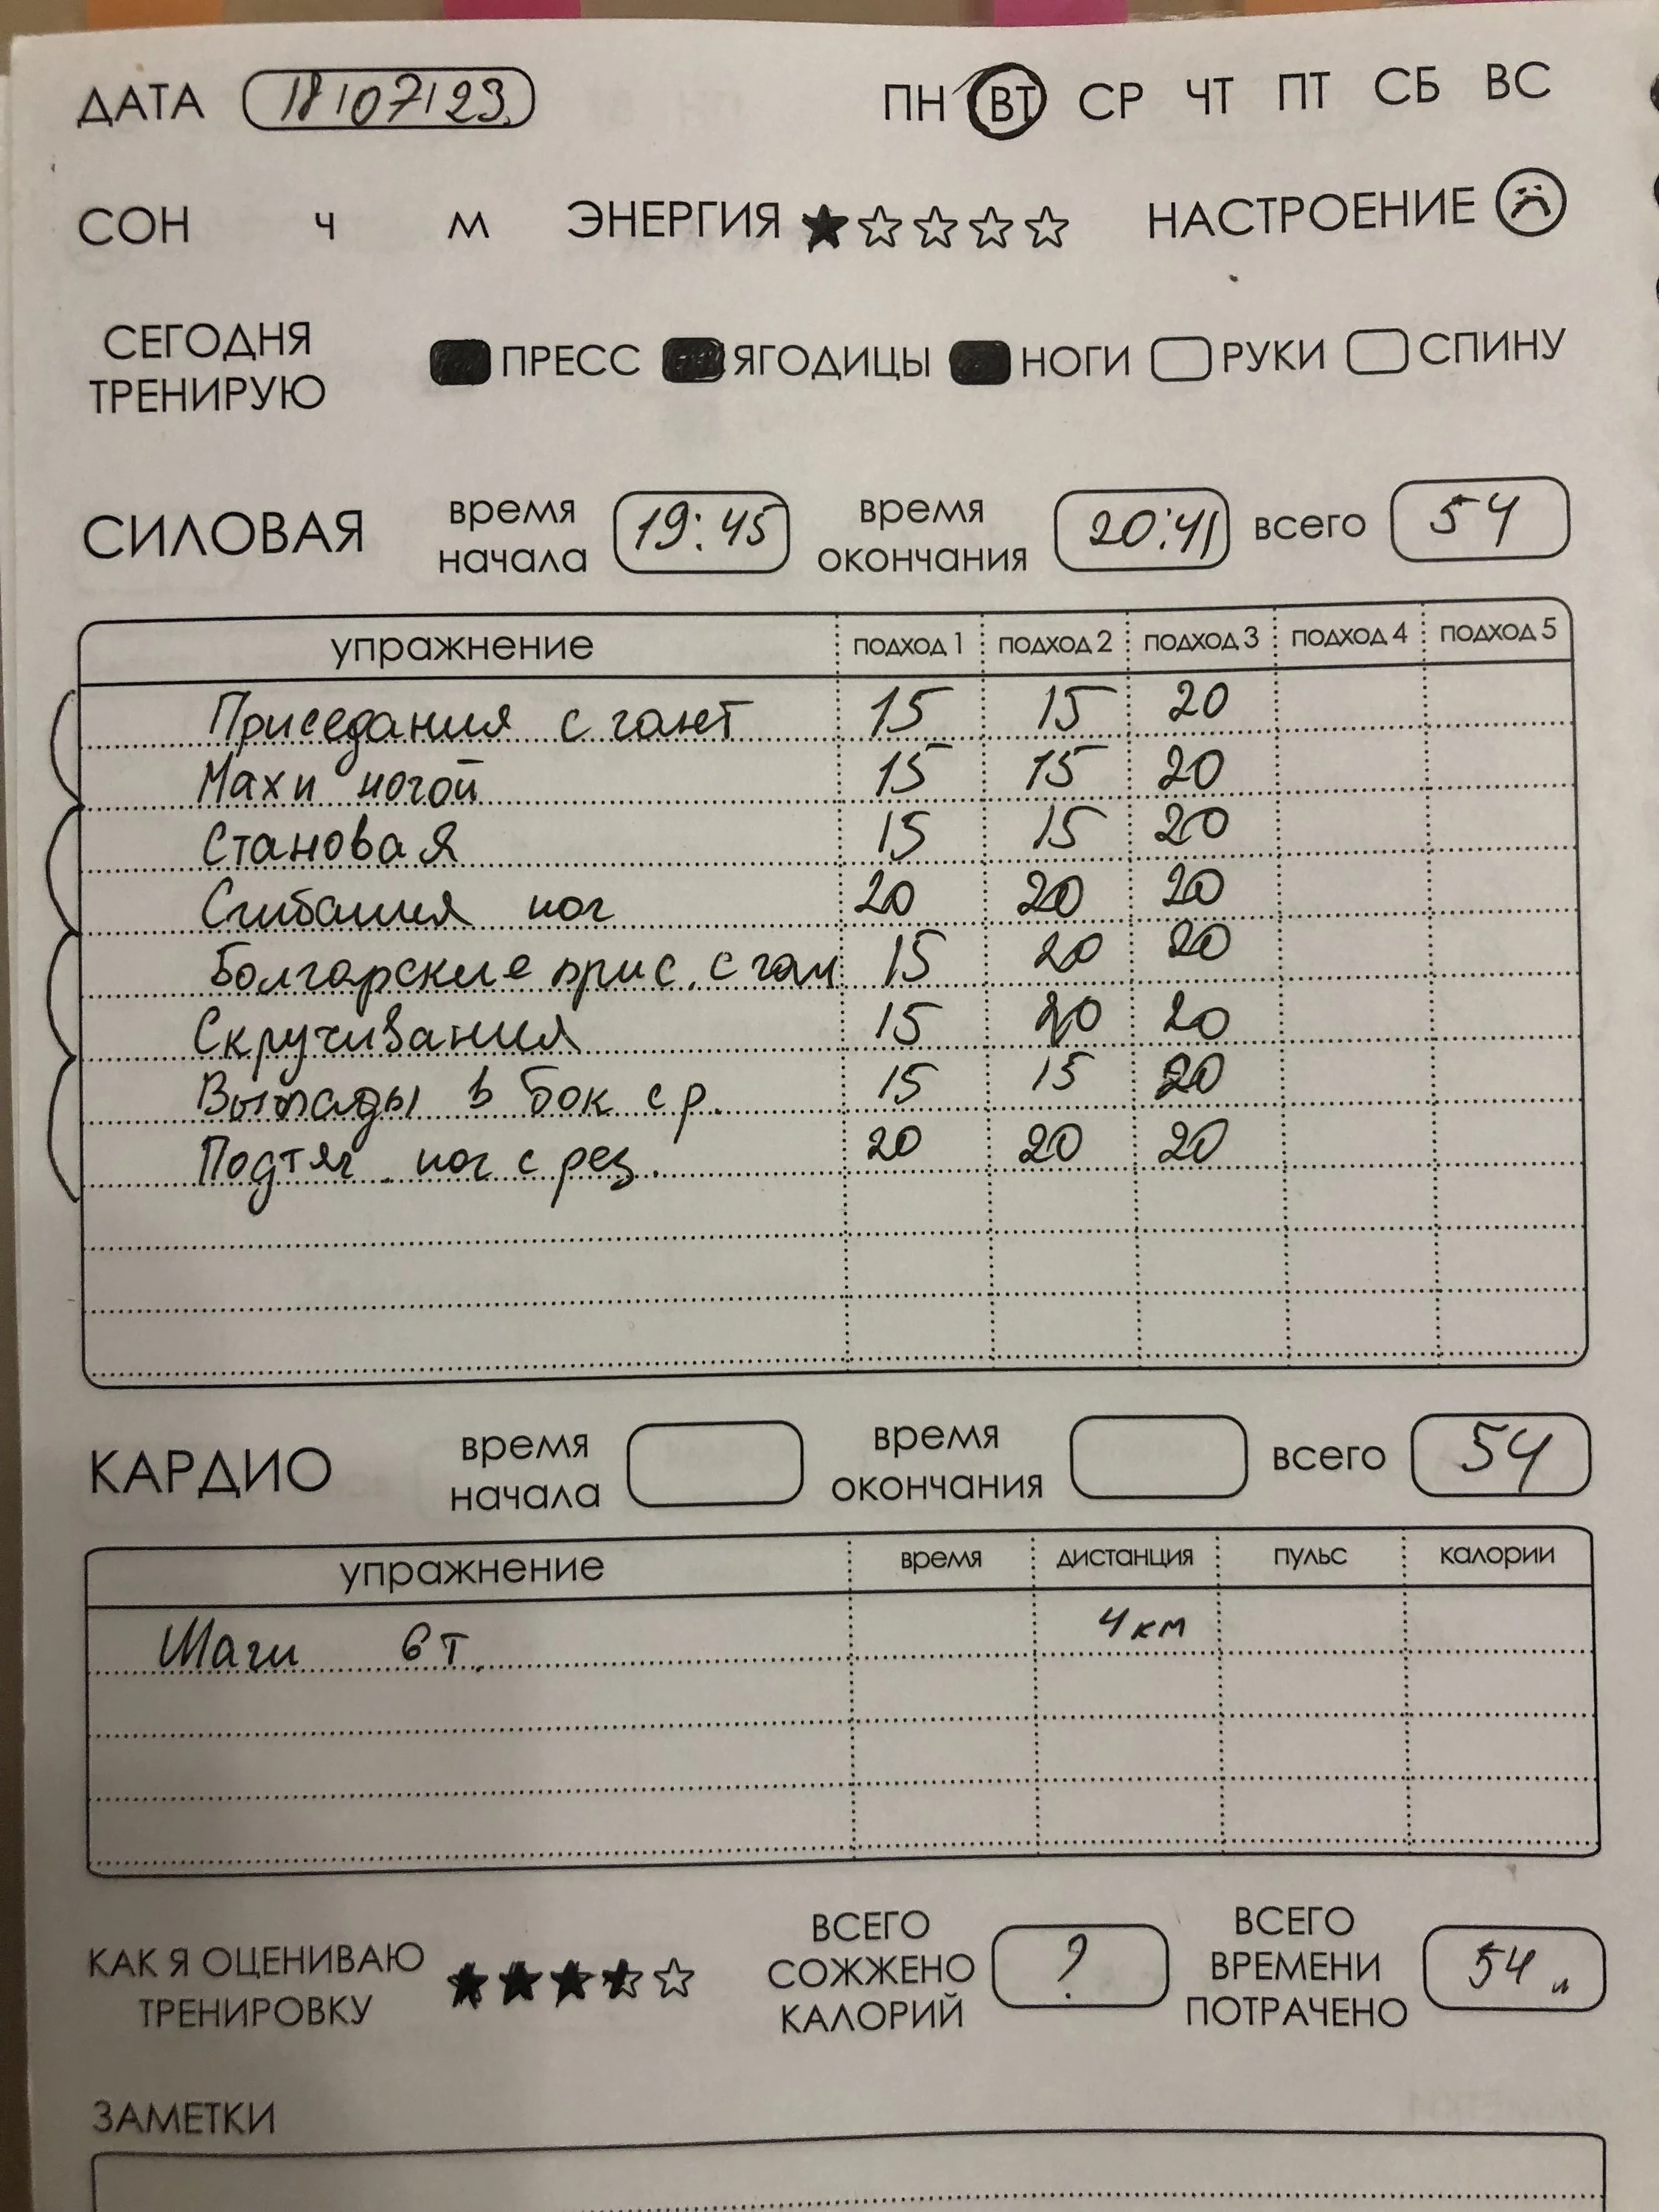 ДАТА 18/07/23 ПН ВТ СР ЧТ ПТ СБ ВС
СОН Ч М ЭНЕРГИЯ НАСТРОЕНИЕ
СЕГОДНЯ
ТРЕНИРУЮ
ПРЕСС ЯГОДИЦЫ НОГИ РУКИ СПИНУ
СИЛОВАЯ время начала 19:45 время окончания 20:41 всего 54
упражнение подход 1 подход 2 подход 3 подход 4 подход 5
Приседания с гант 15 15 20
Махи ногой 15 15 20
Становая 15 15 20
Сгибания ног 20 20 20
Болгарские прис. с ган 15 20 20
Скручивания 15 20 20
Выпады в бок с р. 15 15 20
Подтяг. ног с рез. 20 20 20
КАРДИО время начала время окончания всего 54
упражнение время дистанция пульс калории
Шаги 6 т. 4 км
КАК Я ОЦЕНИВАЮ
ТРЕНИРОВКУ
ВСЕГО
СОЖЖЕНО
КАЛОРИЙ
?
ВСЕГО
ВРЕМЕНИ
ПОТРАЧЕНО
54 м
ЗАМЕТКИ